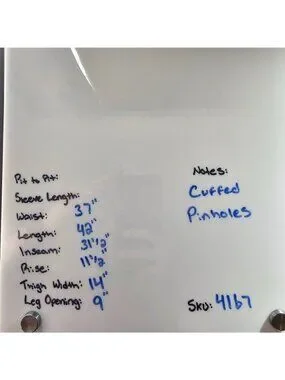 Pit to Pit:
Sleeve Length:
Waist: 37"
Length: 42"
Inseam: 31 1/2"
Rise: 11 1/2"
Thigh Width: 14"
Leg Opening: 9"
Notes:
Cuffed
Pinholes
SKU: 4167